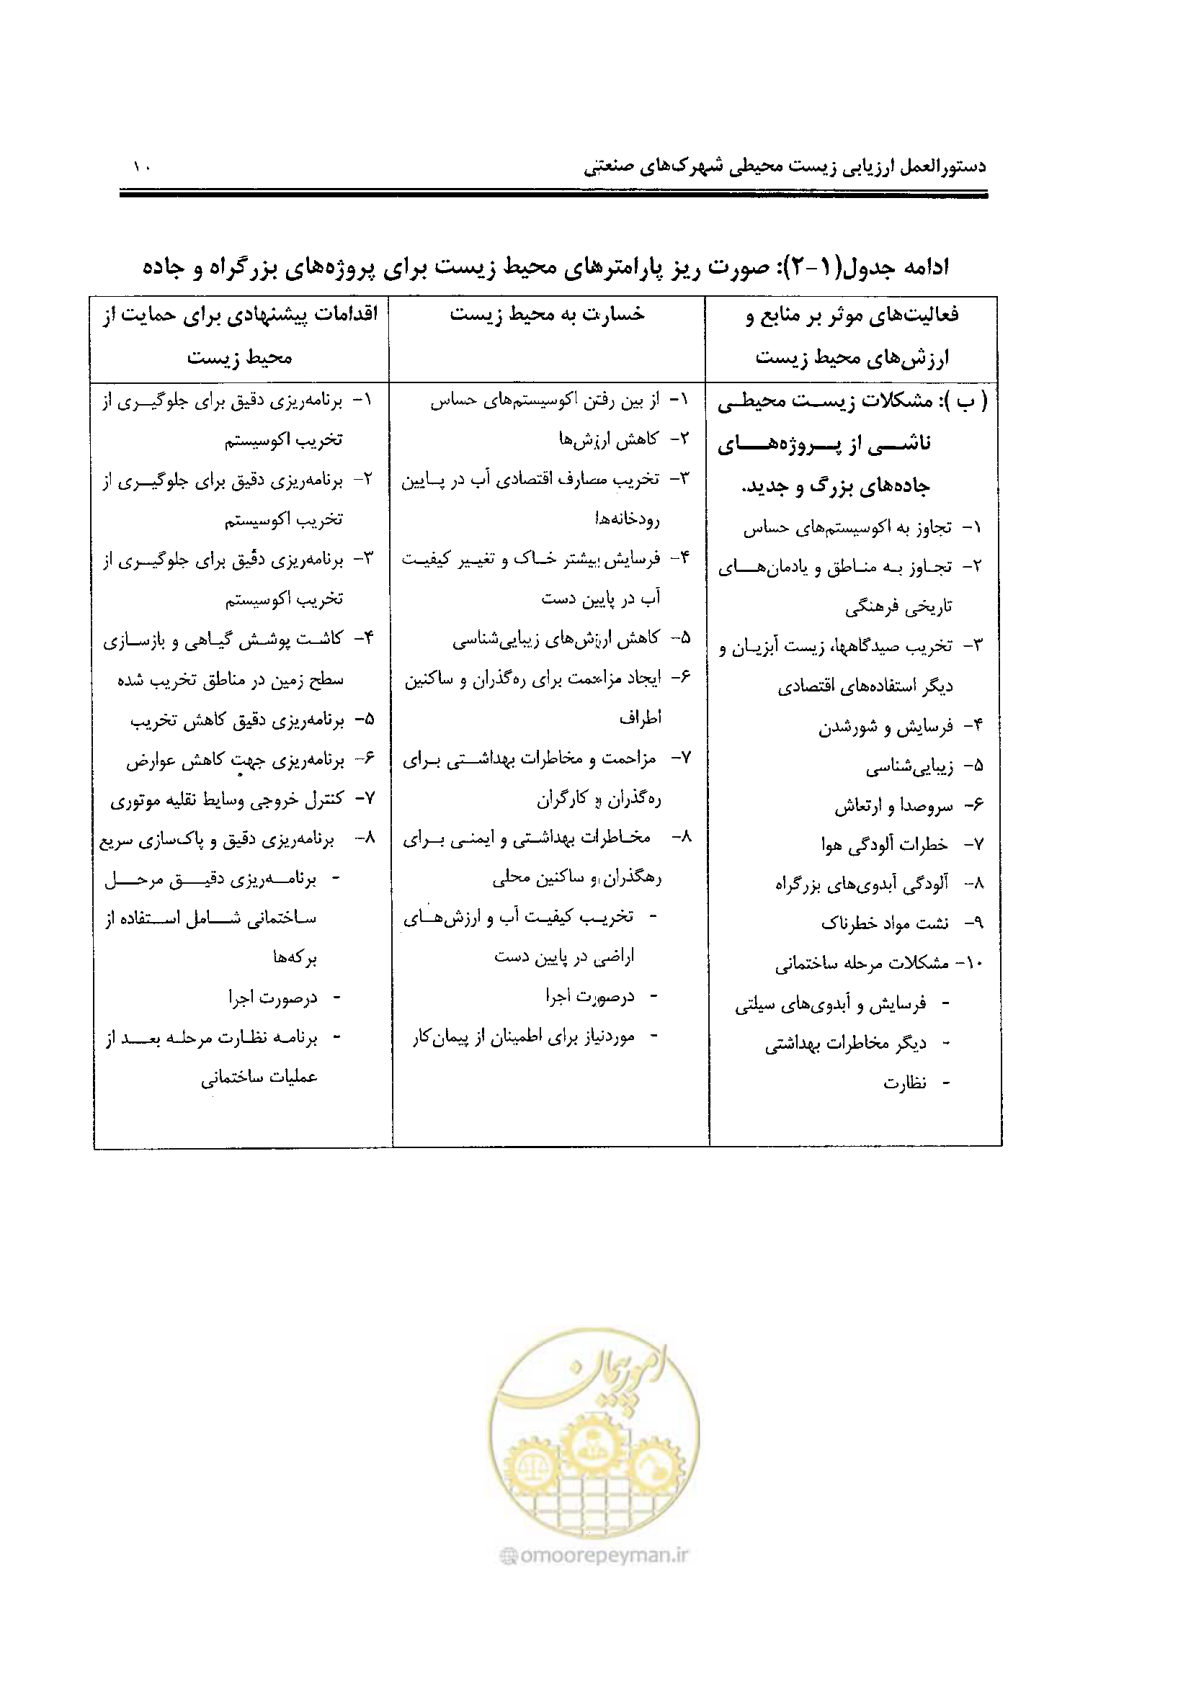 دستورالعمل ارزیابی زیست محیطی شهرک‌های صنعتی
۱۰
ادامه جدول(۱-۲): صورت ریز پارامترهای محیط زیست برای پروژه‌های بزرگراه و جاده
فعالیت‌های موثر بر منابع و
ارزش‌های محیط زیست
خسارت به محیط زیست
اقدامات پیشنهادی برای حمایت از
محیط زیست
( ب ): مشکلات زیست محیطی
ناشی از پروژه‌های
جاده‌های بزرگ و جدید.
۱- تجاوز به اکوسیستم‌های حساس
۲- تجاوز به مناطق و یادمان‌های
تاریخی فرهنگی
۳- تخریب صیدگاهها، زیست آبزیان و
دیگر استفاده‌های اقتصادی
۴- فرسایش و شورشدن
۵- زیبایی‌شناسی
۶- سروصدا و ارتعاش
۷- خطرات آلودگی هوا
۸- آلودگی آبدوی‌های بزرگراه
۹- نشت مواد خطرناک
۱۰- مشکلات مرحله ساختمانی
- فرسایش و آبدوی‌های سیلتی
- دیگر مخاطرات بهداشتی
- نظارت
۱- از بین رفتن اکوسیستم‌های حساس
۲- کاهش ارزش‌ها
۳- تخریب مصارف اقتصادی آب در پایین
رودخانه‌ها
۴- فرسایش بیشتر خاک و تغییر کیفیت
آب در پایین دست
۵- کاهش ارزش‌های زیبایی‌شناسی
۶- ایجاد مزاحمت برای ره‌گذران و ساکنین
اطراف
۷- مزاحمت و مخاطرات بهداشتی برای
ره‌گذران و کارگران
۸- مخاطرات بهداشتی و ایمنی برای
رهگذران و ساکنین محلی
- تخریب کیفیت آب و ارزش‌های
اراضی در پایین دست
- درصورت اجرا
- موردنیاز برای اطمینان از پیمان‌کار
۱- برنامه‌ریزی دقیق برای جلوگیری از
تخریب اکوسیستم
۲- برنامه‌ریزی دقیق برای جلوگیری از
تخریب اکوسیستم
۳- برنامه‌ریزی دقیق برای جلوگیری از
تخریب اکوسیستم
۴- کاشت پوشش گیاهی و بازسازی
سطح زمین در مناطق تخریب شده
۵- برنامه‌ریزی دقیق کاهش تخریب
۶- برنامه‌ریزی جهت کاهش عوارض
۷- کنترل خروجی وسایط نقلیه موتوری
۸- برنامه‌ریزی دقیق و پاک‌سازی سریع
- برنامه‌ریزی دقیق مرحل
ساختمانی شامل استفاده از
برکه‌ها
- درصورت اجرا
- برنامه نظارت مرحله بعد از
عملیات ساختمانی
امور پیمان
omoorepeyman.ir